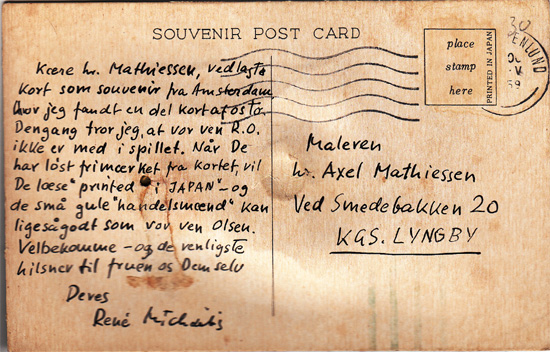 SOUVENIR POST CARD
Kære hr. Mathiessen, vedlagte
kort som souvenir fra Amsterdam,
hvor jeg fandt en del kort af o. sto.
Dengang tror jeg, at vor ven R.O.
ikke er med i spillet. Når De
har løst frimærket fra kortet, vil
De læse "printed i JAPAN" - og
de små gule "handelsmænd" kan
ligesågodt som vor ven Olsen.
Velbekomme - og de venligste
hilsner til fruen og Dem selv
Deres
René Michaëlis
place
stamp
here
PRINTED IN JAPAN
Maleren
hr. Axel Mathiessen
Ved Smedebakken 20
KGS. LYNGBY